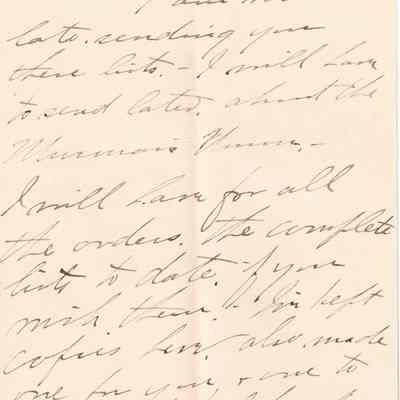 late. sending you
these lists. - I will have
to send later. about the
I will have for all
the orders. the complete
lists to date. if you
wish them. - I've kept
copies here. also. made
one for you, + one to